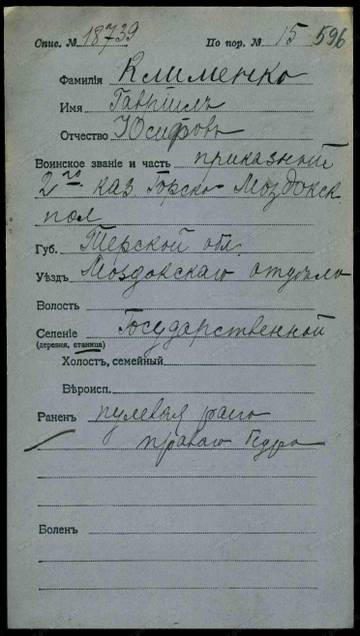 Спис. № 18739 По пор. № 15 596
Фамилія Клименко
Имя Гавріилъ
Отчество Юсифовъ
Воинское званіе и часть приказный
2го каз Горско Моздокск
пол
Губ. Терской обл.
Уѣздъ Моздокскаго отдѣла
Волость
Селеніе Государственной
(деревня, станица)
Холостъ, семейный
Вѣроисп.
Раненъ пулевая рана
праваго бедра
Боленъ